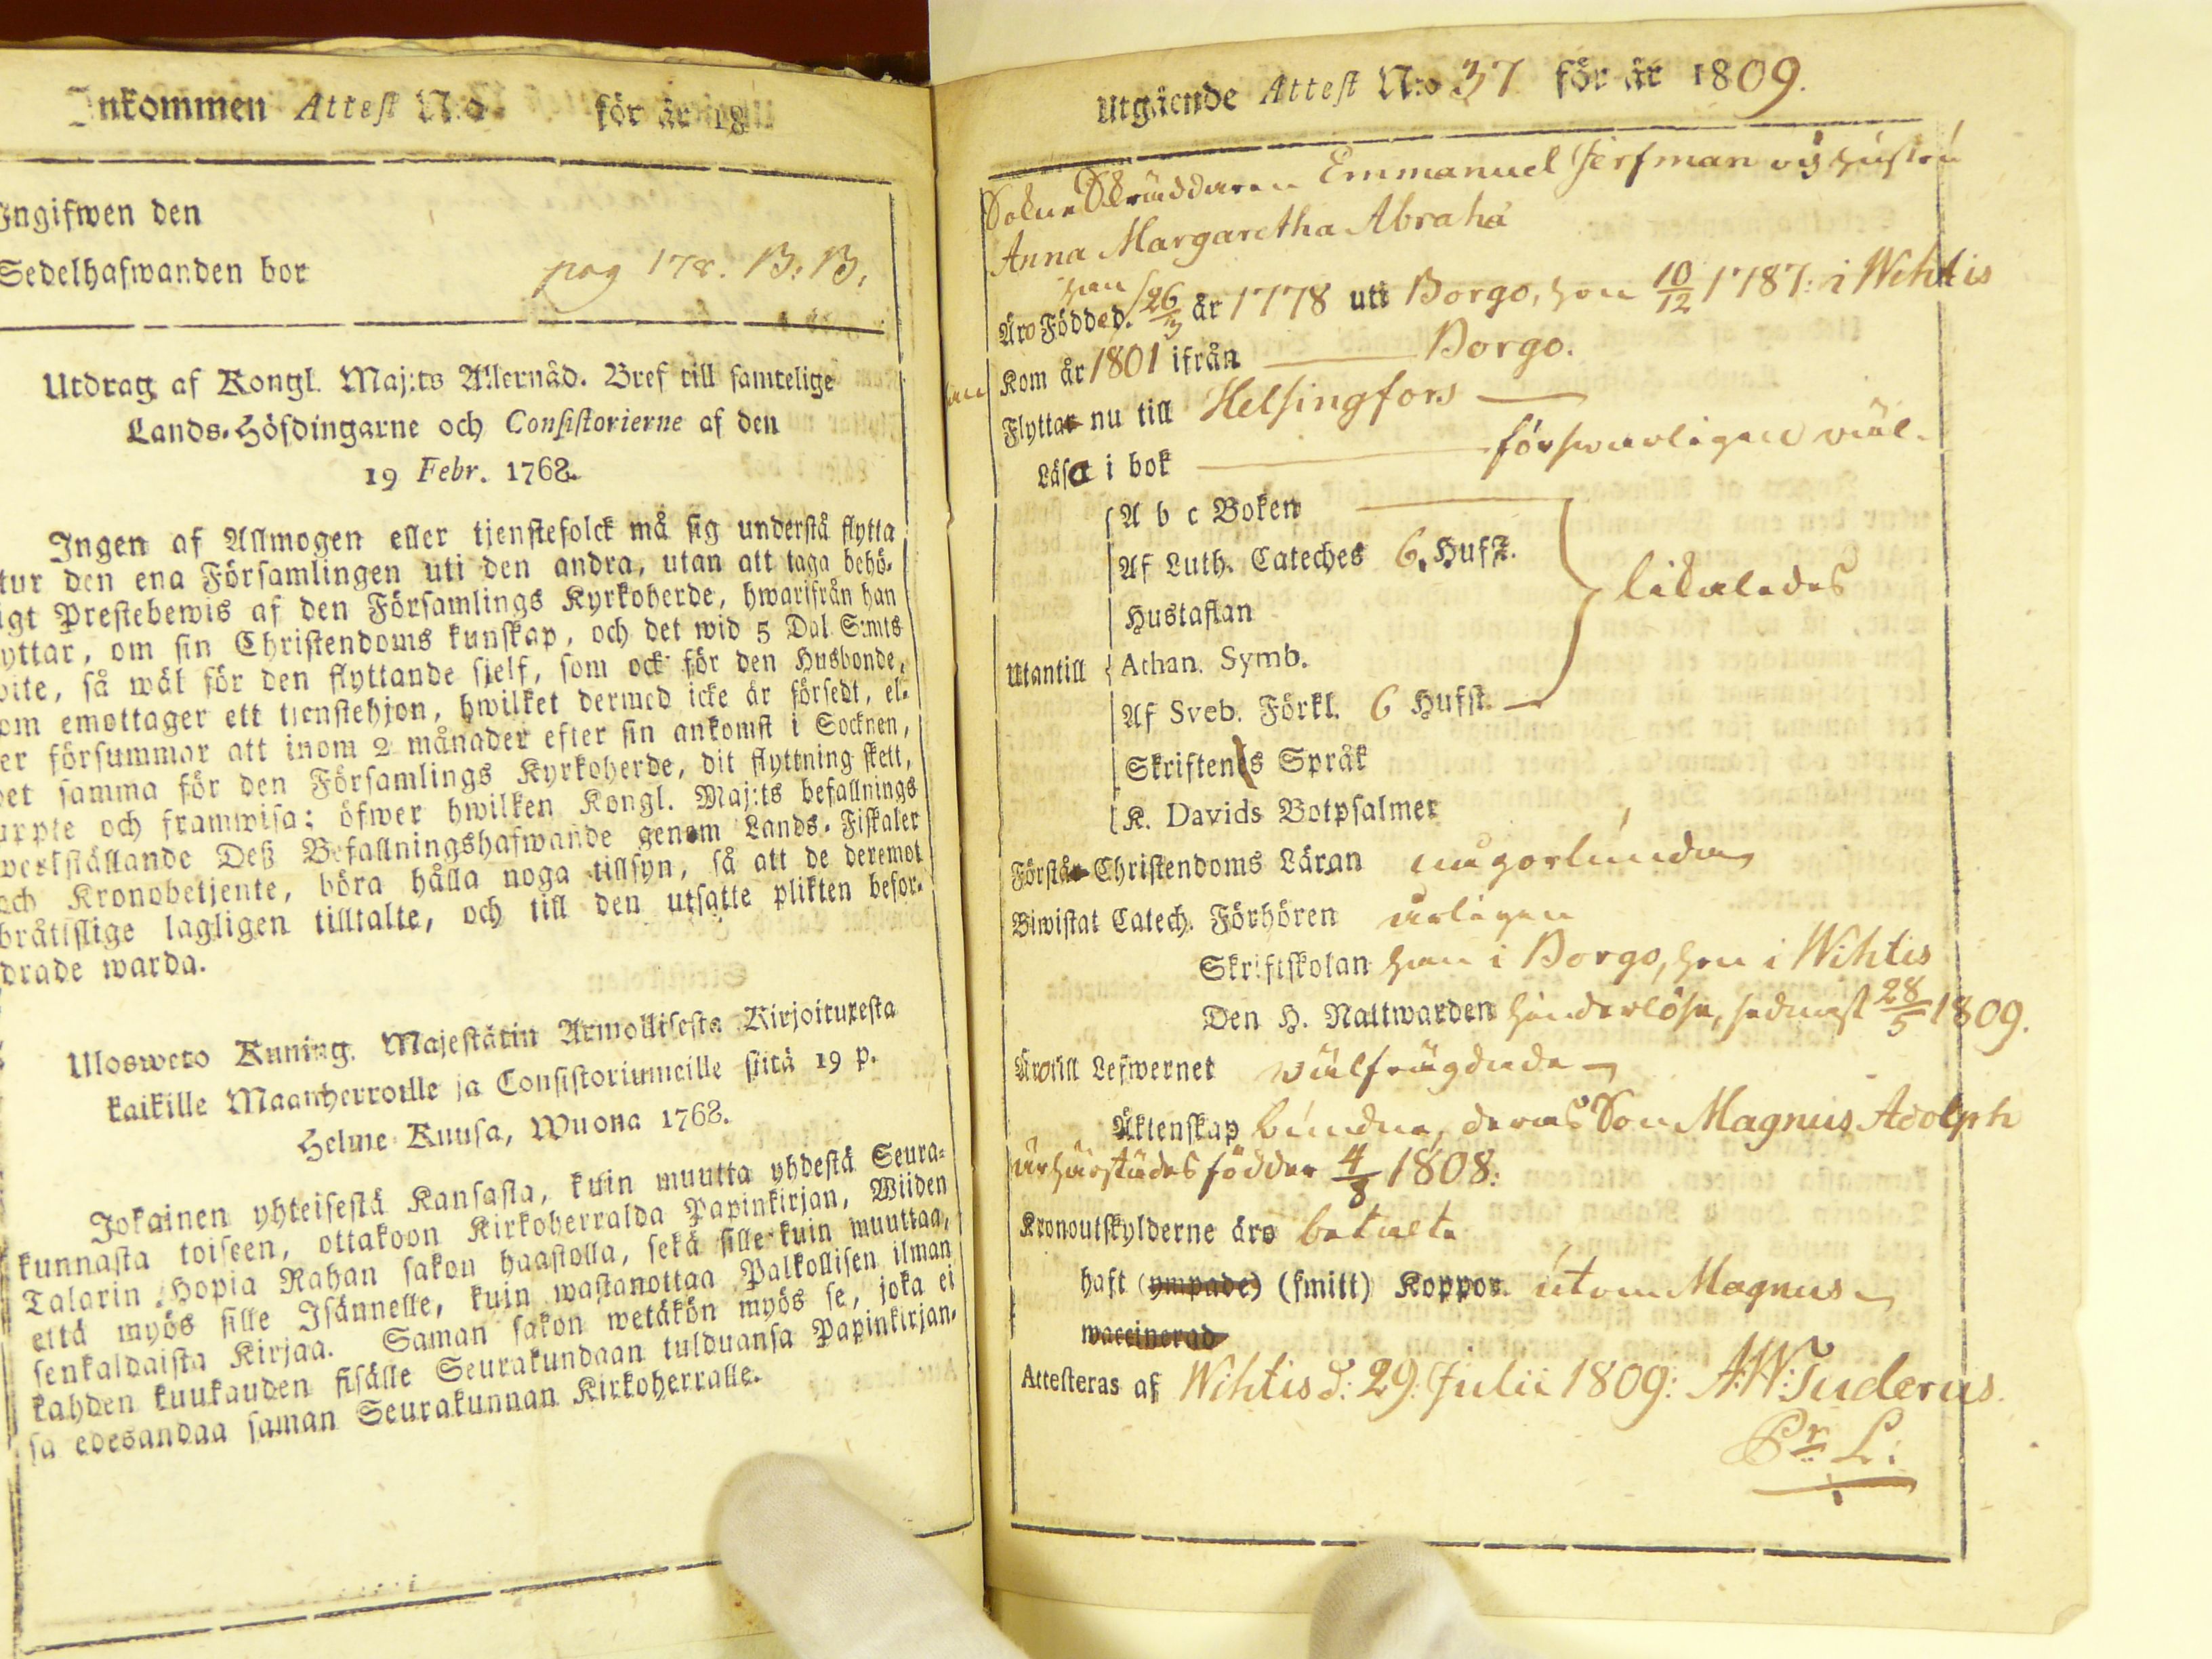 Inkommen Attest N:o för år 18
Ingifwen den
Sedelhafwanden bor pag 178. B. B.
Utdrag af Kongl. Maj:ts Allernåd. Bref till samtelige
Lands-Höfdingarne och Consistorierne af den
19 Febr. 1768.
Ingen af Allmogen eller tjenstefolck må sig understå flytta
tur den ena Församlingen uti den andra, utan att taga behö-
igt Prestebewis af den Församlings Kyrkoherde, hwarifrån han
yttar, om sin Christendoms kunskap, och det wid 5 Dal S:mts
wite, så wäl för den flyttande sjelf, som ock för den Husbonde,
om emottager ett tjenstehjon, hwilket dermed icke är försedt, el-
er försummar att inom 2 månader efter sin ankomst i Socknen,
det samma för den Församlings Kyrkoherde, dit flyttning skett,
uppte och framwisa: öfwer hwilken Kongl. Maj:ts befallnings
werkställande Deß Befallningshafwande genom Lands-Fiskaler
och Kronobetjente, böra hålla noga tillsyn, så att de deremot
bråtslige lagligen tilltalte, och till den utsatte plikten befor-
drade warda.
Ulosweto Kuning. Majestätin Armollisesta Kirjoituxesta
kaikille Maanherroille ja Consistoriumeille siitä 19 p.
Helme-Kuusa, Wuona 1768.
Jokainen yhteisestä Kansasta, kuin muutta yhdestä Seura-
kunnasta toiseen, ottakoon Kirkoherralda Papinkirjan, Wiiden
Talarin Hopia Rahan sakon haastolla, sekä sille kuin muuttaa,
että myös sille Isännelle, kuin wastanottaa Palkollisen ilman
senkaldaista Kirjaa. Saman sakon wetäkön myös se, joka ei
kahden kuukauden sisälle Seurakundaan tulduansa Papinkirjan-
sa edesandaa saman Seurakunnan Kirkoherralle.
Utgående Attest N:o 37 för år 1809.
Sokne Skräddaren Emmanuel Jerfman och hustru
Anna Margaretha Abrahä
han
Äro Födde d. 26/3 år 1778 uti Borgo, hon 10/12 1787: i Wihtis
Kom år 1801 ifrån Borgo.
Flytta nu till Helsingfors
Läsa i bok försvarligen väl.
A b c Boken
Af Luth. Cateches 6. Hufst.
Hustaflan likaledes
Utantill Athan. Symb.
Af Sveb. Förkl. 6 Hufst.
Skriftenes Språk
K. Davids Botpsalmer
Förstå Christendoms Läran någorlunda
Biwistat Catech. Förhören årligen
Skriftskolan han i Borgo, hon i Wihtis
Den H. Nattwarden hinderlöse, sednast 28/5 1809.
Äro till Lefwernet välfrägdade
Äktenskap bundne, deras Son Magnus Adolph
är härstädes födder 4/8 1808:
Kronoutskylderne äro betalte
haft (ympade) (smitt) Koppor. utom Magnus
waccinerad
Attesteras af Wihtis d: 29. Julii 1809: A:W:Tuderus.
Pr. L: